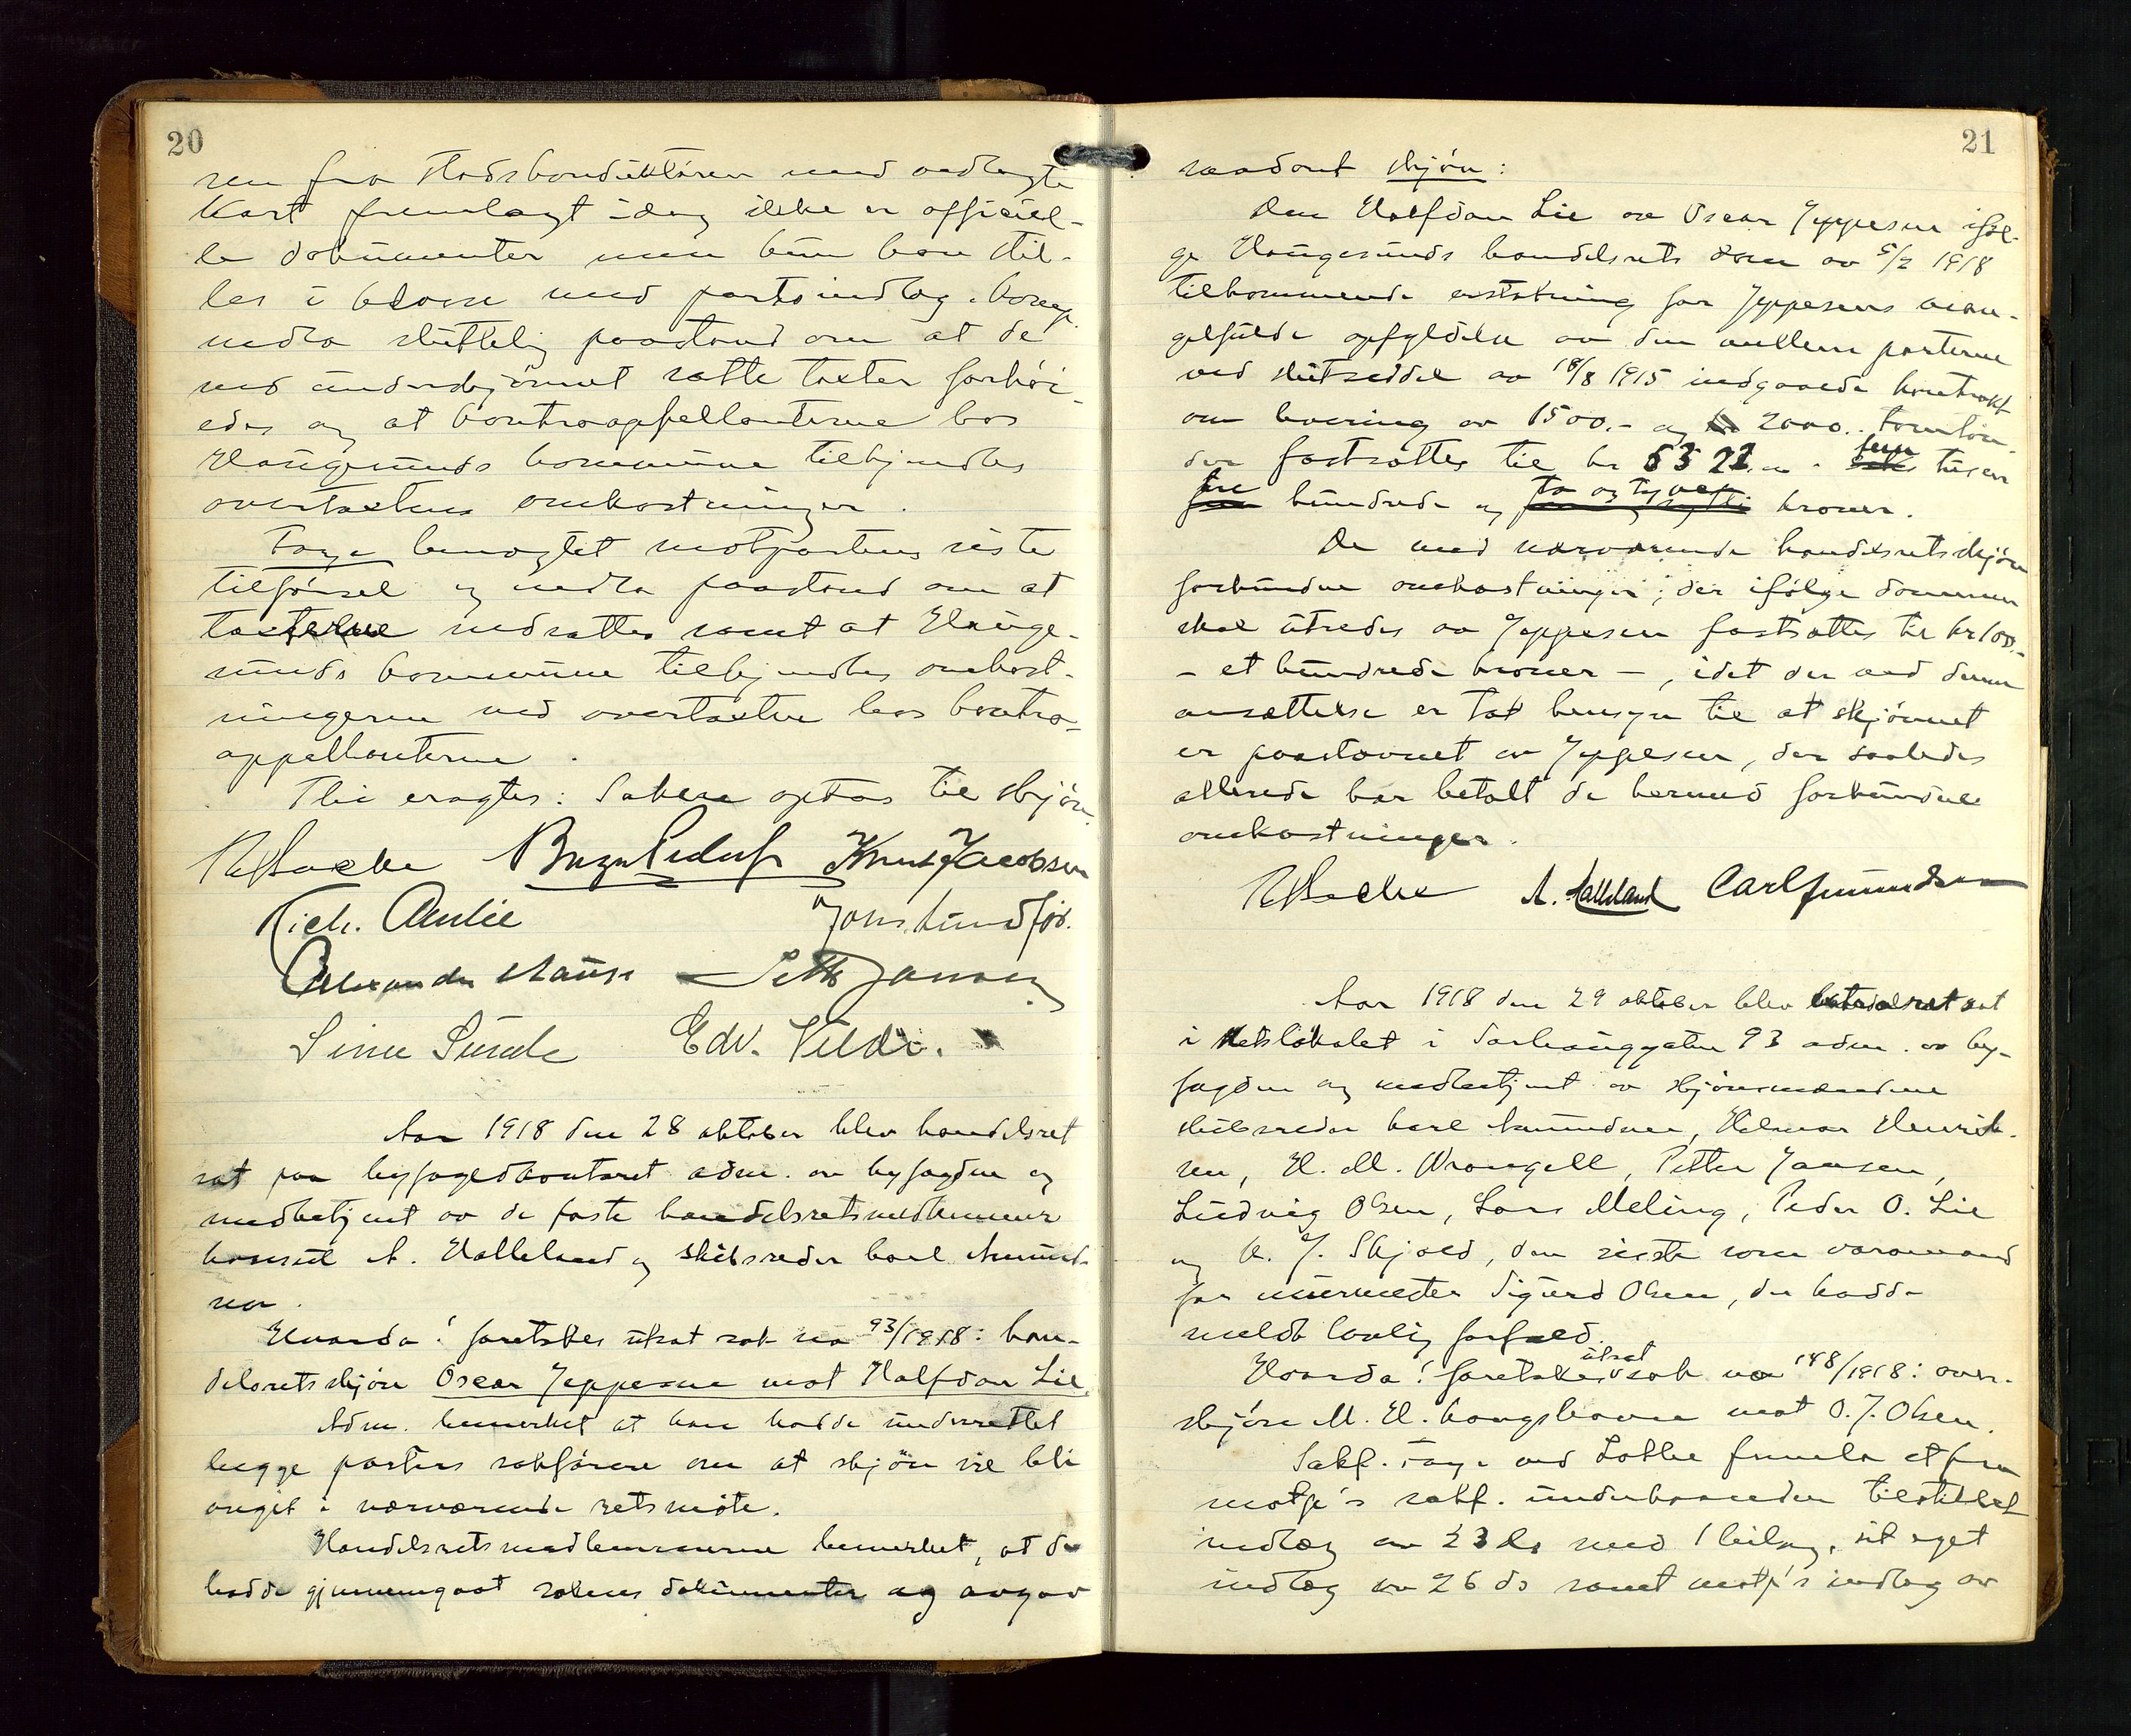 20
sen fra stadskonduktøren med vedlagte
kart fremlagt idag ikke er officiel-
le dokumenter men kun kan stil-
les i klasse med partsindlæg.
nedla sluttelig paastand om at de
ved underskjønnet satte takster forhøi-
edes og at kontraappellanterne hos
Haugesunds kommune tilkjendtes
overtakstens omkostninger.
Taye benegtet motpartens siste
tilførsel og nedla paastand om at
taksterne nedsattes samt at Hauge-
sunds kommune tilkjendtes omkost-
ningerne ved overtaksten hos kontra-
appellanterne.
Thi eragtes: Saken optas til skjøn.
Knut Jacobsen
Rich. Amlie Johs. Lundfor.
Alexander Hause Jansen
Sime Sunde Edv.
Aar 1918 den 28 oktober blev handelsret
sat paa byfogedkontoret adm. av byfogden og
medbetjent av de faste handelsretsmedlemmer
konsul A. Halleland og skibsreder Carl Amund-
sen.
Hvorda: foretokes utsat sak no 93/1918: han-
delsretsskjøn Oscar Jeppesen mot Halfdan Lie.
Adm. bemerket at han hadde underrettet
begge parters sakførere om at skjøn vil bli
avgit i nærværende retsmøte.
Handelsretsmedlemmerne bemerket, at de
hadde gjennemgaat sakens dokumenter og avgav
21
saadant skjøn:
Den Halfdan Lie av Oscar Jeppesen iføl-
ge Haugesunds handelsrets dom av 5/2 1918
tilkommende erstatning for Jeppesens man-
gelfulde opfyldelse av den mellem parterne
ved slutseddel av 18/8 1915 indgaaede kontrakt
om levering av 1500.- og 2000.- tomtøn-
der fastsættes til kr 5322.- fem tusen
tre hundrede og to og tyve kroner.
De med nærværende handelsretsskjøn
forbundne omkostninger, der ifølge dommen
skal utredes av Jeppesen fastsættes til kr 100.-
- et hundrede kroner -, idet der ved denne
ansættelse er tat hensyn til at skjønnet
er paastevnet av Jeppesen, der saaledes
allerede har betalt de hermed forbundne
omkostninger.
A. Halleland Carl Amundsen
Aar 1918 den 29 oktober blev sat
i retslokalet i Sørhauggaten 93 adm. av by-
fogden og medbetjent av skjønsmændene
skibsreder Carl Amundsen, Helmar Henrik-
sen, H. M. Wrangell, Petter Jansen,
Ludvig Olsen, Lars Meling, Peder O. Lie
og K. J. Skjold, den siste som varamand
for murmester Sigurd Olsen, der hadde
meldt lovlig forfald.
Hvorda: foretokes utsat sak no 148/1918: over-
skjøn M. H. Kongshavn mot O. J. Olsen.
Sakf. Taye ved Løkke fremla et fra
motp's sakf. underhaanden tilstillet
indlæg av 23 ds med 1 bilag, sit eget
indlæg av 26 ds samt motp's indlæg av